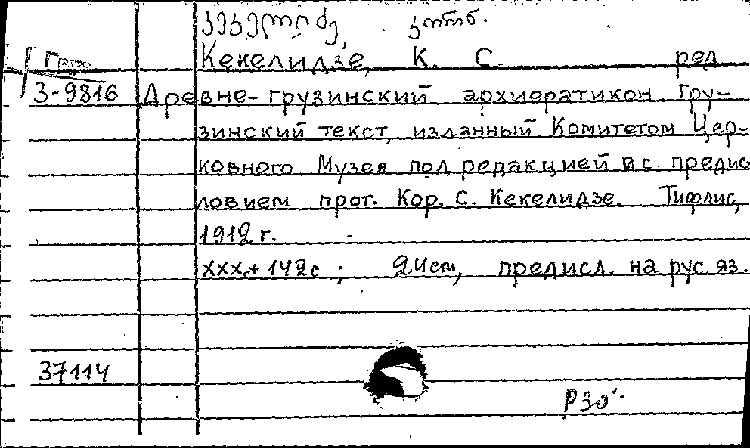 კეკელიძე, კორნ.
Кекелидзе, К. С. ред
Груз
3-9816 Древне-грузинский архиератикон. Гру-
зинский текст, изданный Комитетом Цер-
ковного Музея под редакцией и с предис
ловием прот. Кор. С. Кекелидзе. Тифлис,
1912 г.
xxx + 142 с ; 24 cm, предисл. на рус. яз.
37114